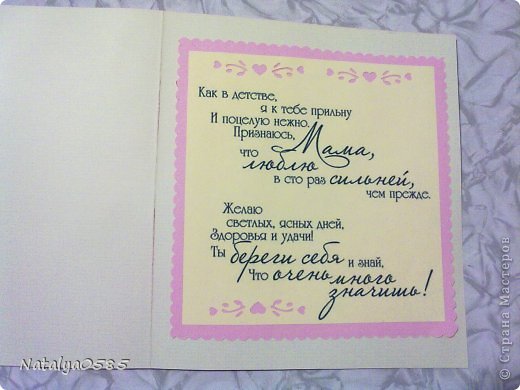 Как в детстве,
я к тебе прильну
И поцелую нежно.
Признаюсь, Мама,
что люблю
в сто раз сильней,
чем прежде.
Желаю
светлых, ясных дней,
Здоровья и удачи!
Ты береги себя и знай,
Что очень много
значишь!
Natalya0585
© Страна Мастеров